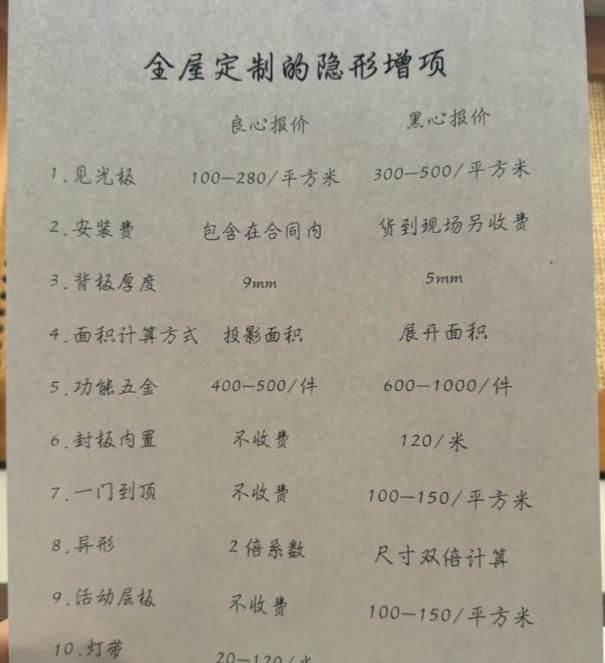 全屋定制的隐形增项
良心报价 黑心报价
1.见光板 100—280/平方米 300—500/平方米
2.安装费 包含在合同内 货到现场另收费
3.背板厚度 9mm 5mm
4.面积计算方式 投影面积 展开面积
5.功能五金 400—500/件 600—1000/件
6.封板内置 不收费 120/米
7.一门到顶 不收费 100—150/平方米
8.异形 2倍系数 尺寸双倍计算
9.活动层板 不收费 100—150/平方米
10.灯带 20—120/米